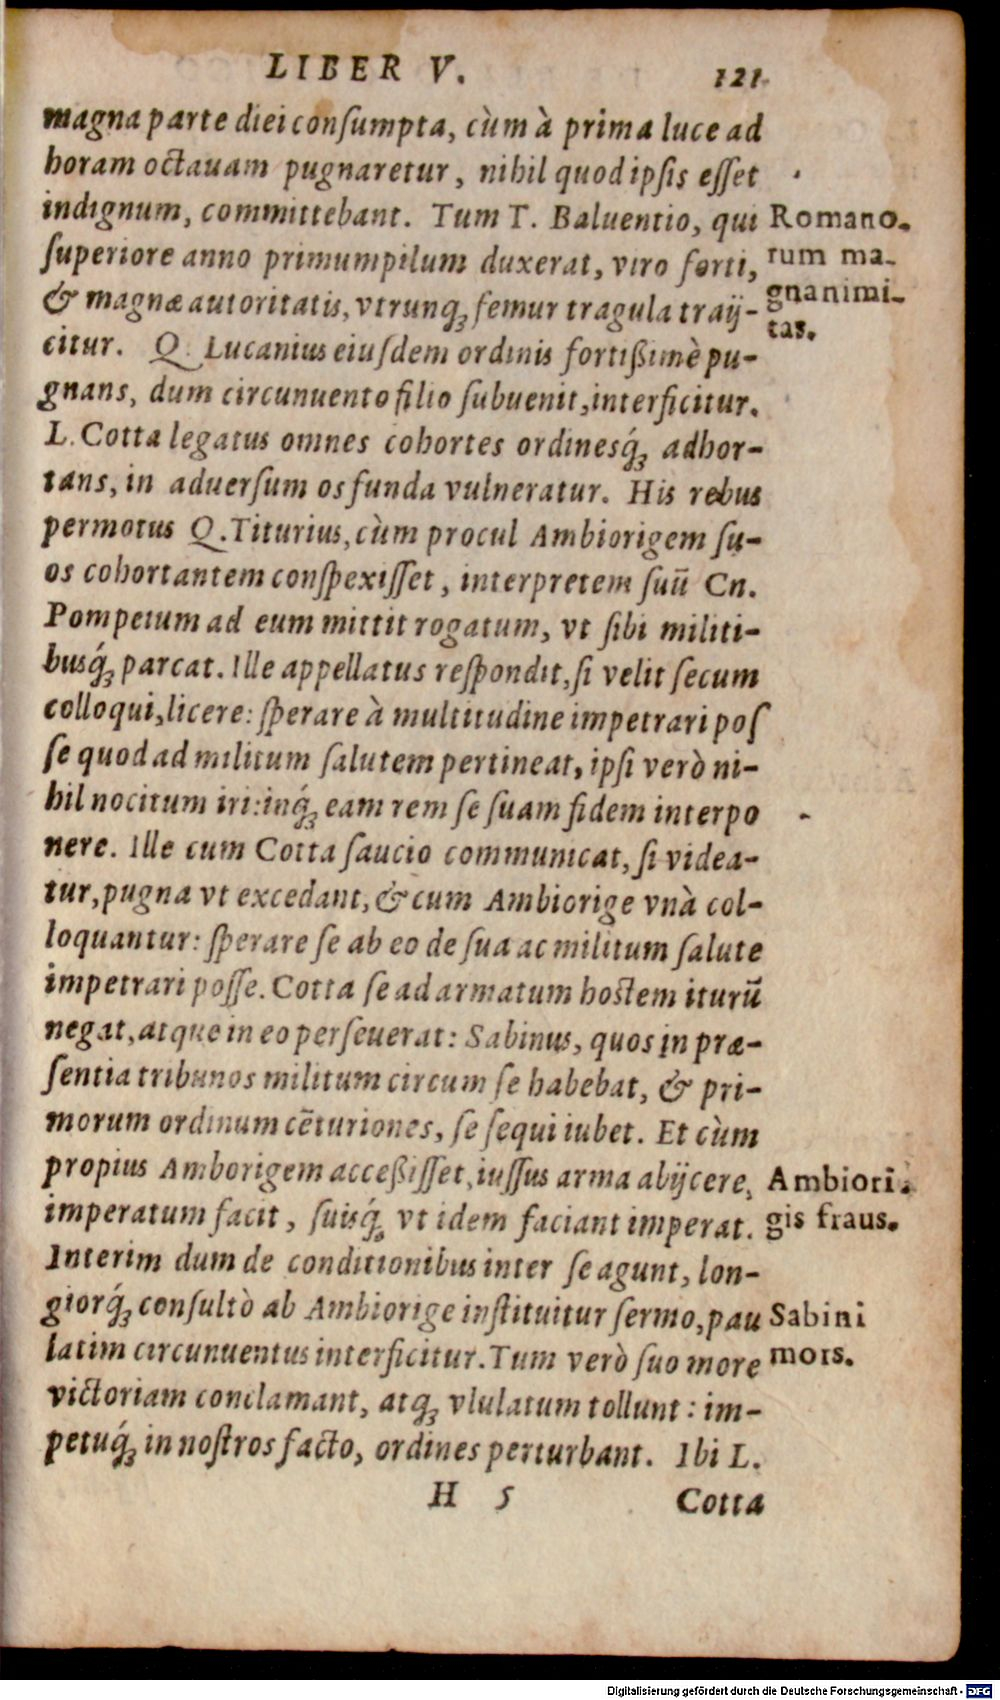 LIBER V. 121
magna parte diei consumpta, cùm à prima luce ad
horam octauam pugnaretur, nihil quod ipsis esset
indignum, committebant. Tum T. Baluentio, qui
superiore anno primumpilum duxerat, viro forti,
& magnæ autoritatis, vtrunq; femur tragula traij-
citur. Q. Lucanius eiusdem ordinis fortißimè pu-
gnans, dum circunuento filio subuenit, interficitur.
L. Cotta legatus omnes cohortes ordinesq́; adhor-
tans, in aduersum os funda vulneratur. His rebus
permotus Q. Titurius, cùm procul Ambiorigem su-
os cohortantem conspexisset, interpretem suū Cn.
Pompeium ad eum mittit rogatum, vt sibi militi-
busq́; parcat. Ille appellatus respondit, si velit secum
colloqui, licere: sperare à multitudine impetrari pos
se quod ad militum salutem pertineat, ipsi verò ni-
hil nocitum iri: inq́; eam rem se suam fidem interpo
nere. Ille cum Cotta saucio communicat, si videa-
tur, pugna vt excedant, & cum Ambiorige vnà col-
loquantur: sperare se ab eo de sua ac militum salute
impetrari posse. Cotta se ad armatum hostem iturū
negat, atque in eo perseuerat: Sabinus, quos in præ-
sentia tribunos militum circum se habebat, & pri-
morum ordinum cēturiones, se sequi iubet. Et cùm
propius Amborigem acceßisset, iussus arma abijcere,
imperatum facit, suisq́; vt idem faciant imperat.
Interim dum de conditionibus inter se agunt, lon-
giorq́; consultò ab Ambiorige instituitur sermo, pau
latim circunuentus interficitur. Tum verò suo more
victoriam conclamant, atq; vlulatum tollunt: im-
petuq́; in nostros facto, ordines perturbant. Ibi L.
H 5 Cotta
Romano-
rum ma-
gnanimi-
tas.
Ambiori-
gis fraus.
Sabini
mors.
Digitalisierung gefördert durch die Deutsche Forschungsgemeinschaft - DFG